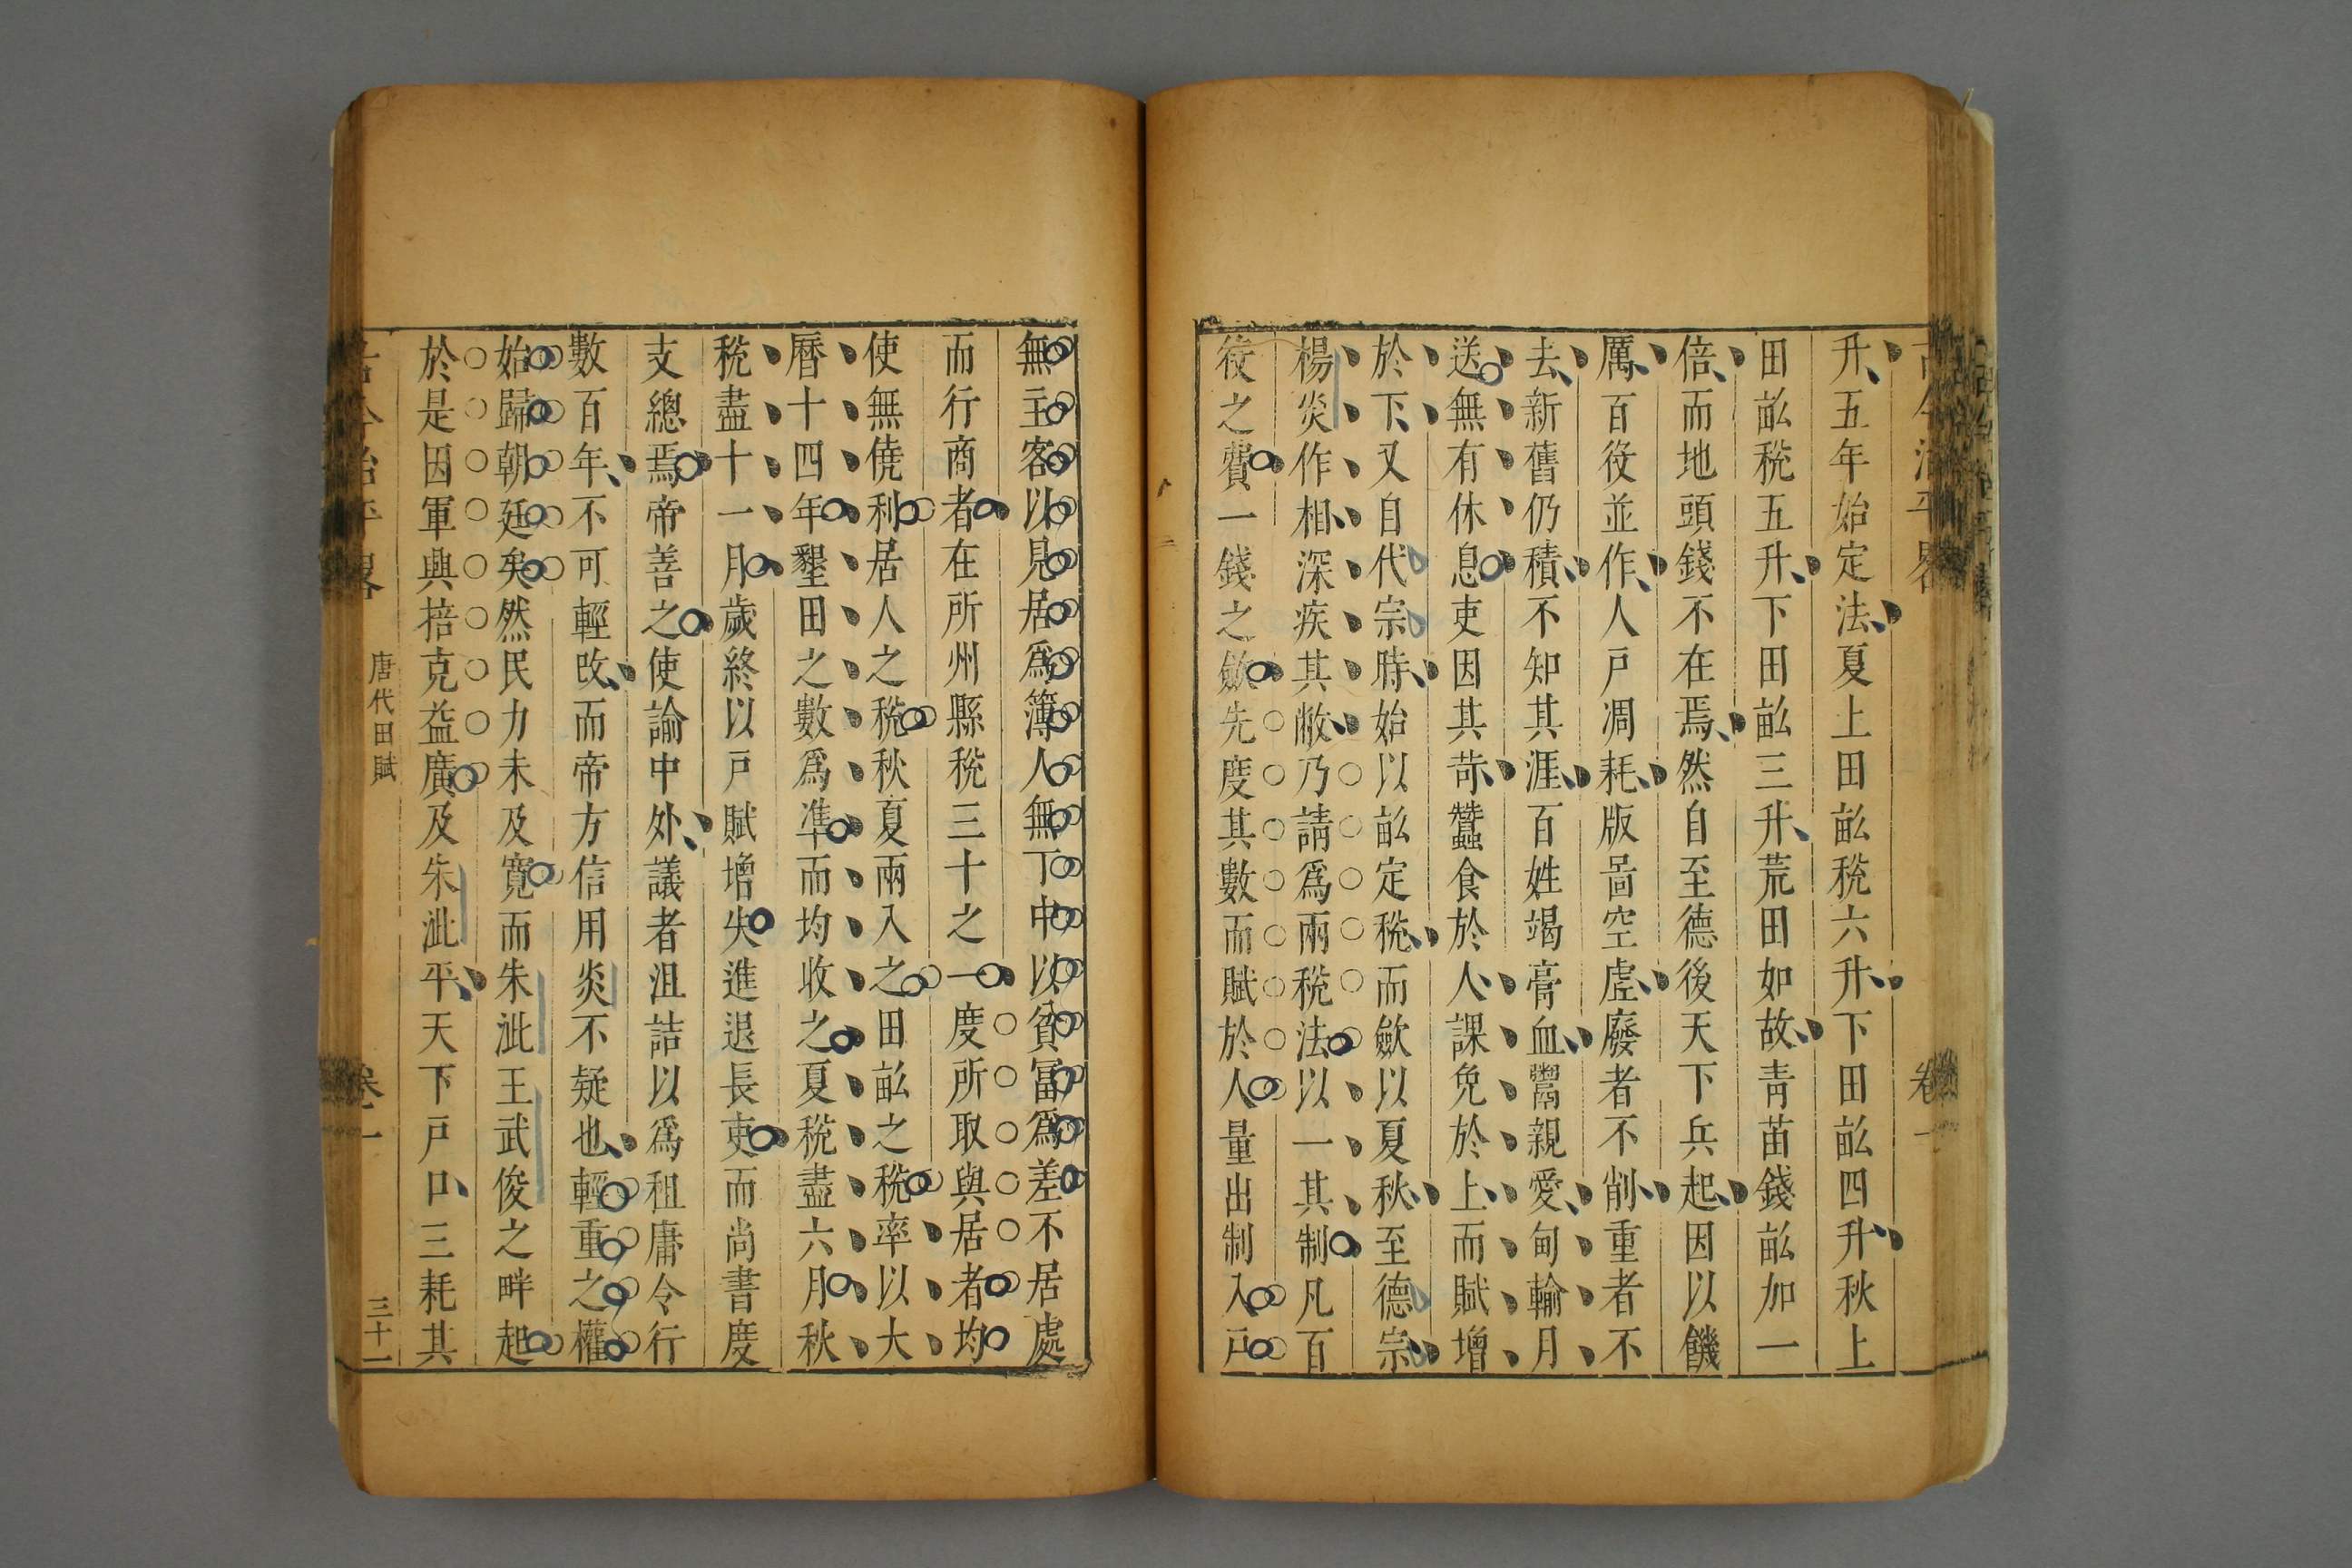 升五年始定法夏上田畝稅六升下田畝四升秋上
田畝稅五升下田畝三升荒田如故青苗錢畝加一
倍而地頭錢不在焉然自至德後天下兵起因以饑
厲百役並作人戸凋耗版啚空虛廢者不削重者不
去新舊仍積不知其涯百姓竭膏血鬻親愛旬輸月
送無有休息吏因其苛蠶食於人課免於上而賦增
於下又自代宗時始以畝定稅而歛以夏秋至德宗
楊炎作相深疾其敝乃請爲兩稅法以一其制凡百
役之費一錢之歛先度其數而賦於人量出制入戸
無主客以見居爲簿人無丁中以貧冨爲差不居處
而行商者在所州縣稅三十之一度所取與居者均
使無僥利居人之稅秋夏兩入之田畝之稅率以大
曆十四年墾田之數爲準而均收之夏稅盡六月秋
稅盡十一月歲終以戸賦增失進退長吏而尚書度
支總焉帝善之使諭中外議者沮詰以爲租庸令行
數百年不可輕改而帝方信用炎不疑也輕重之權
始歸朝廷矣然民力未及寬而朱泚王武俊之畔起
於是因軍興掊克益廣及朱泚平天下戸口三耗其
唐代田賦
卷一
三十一